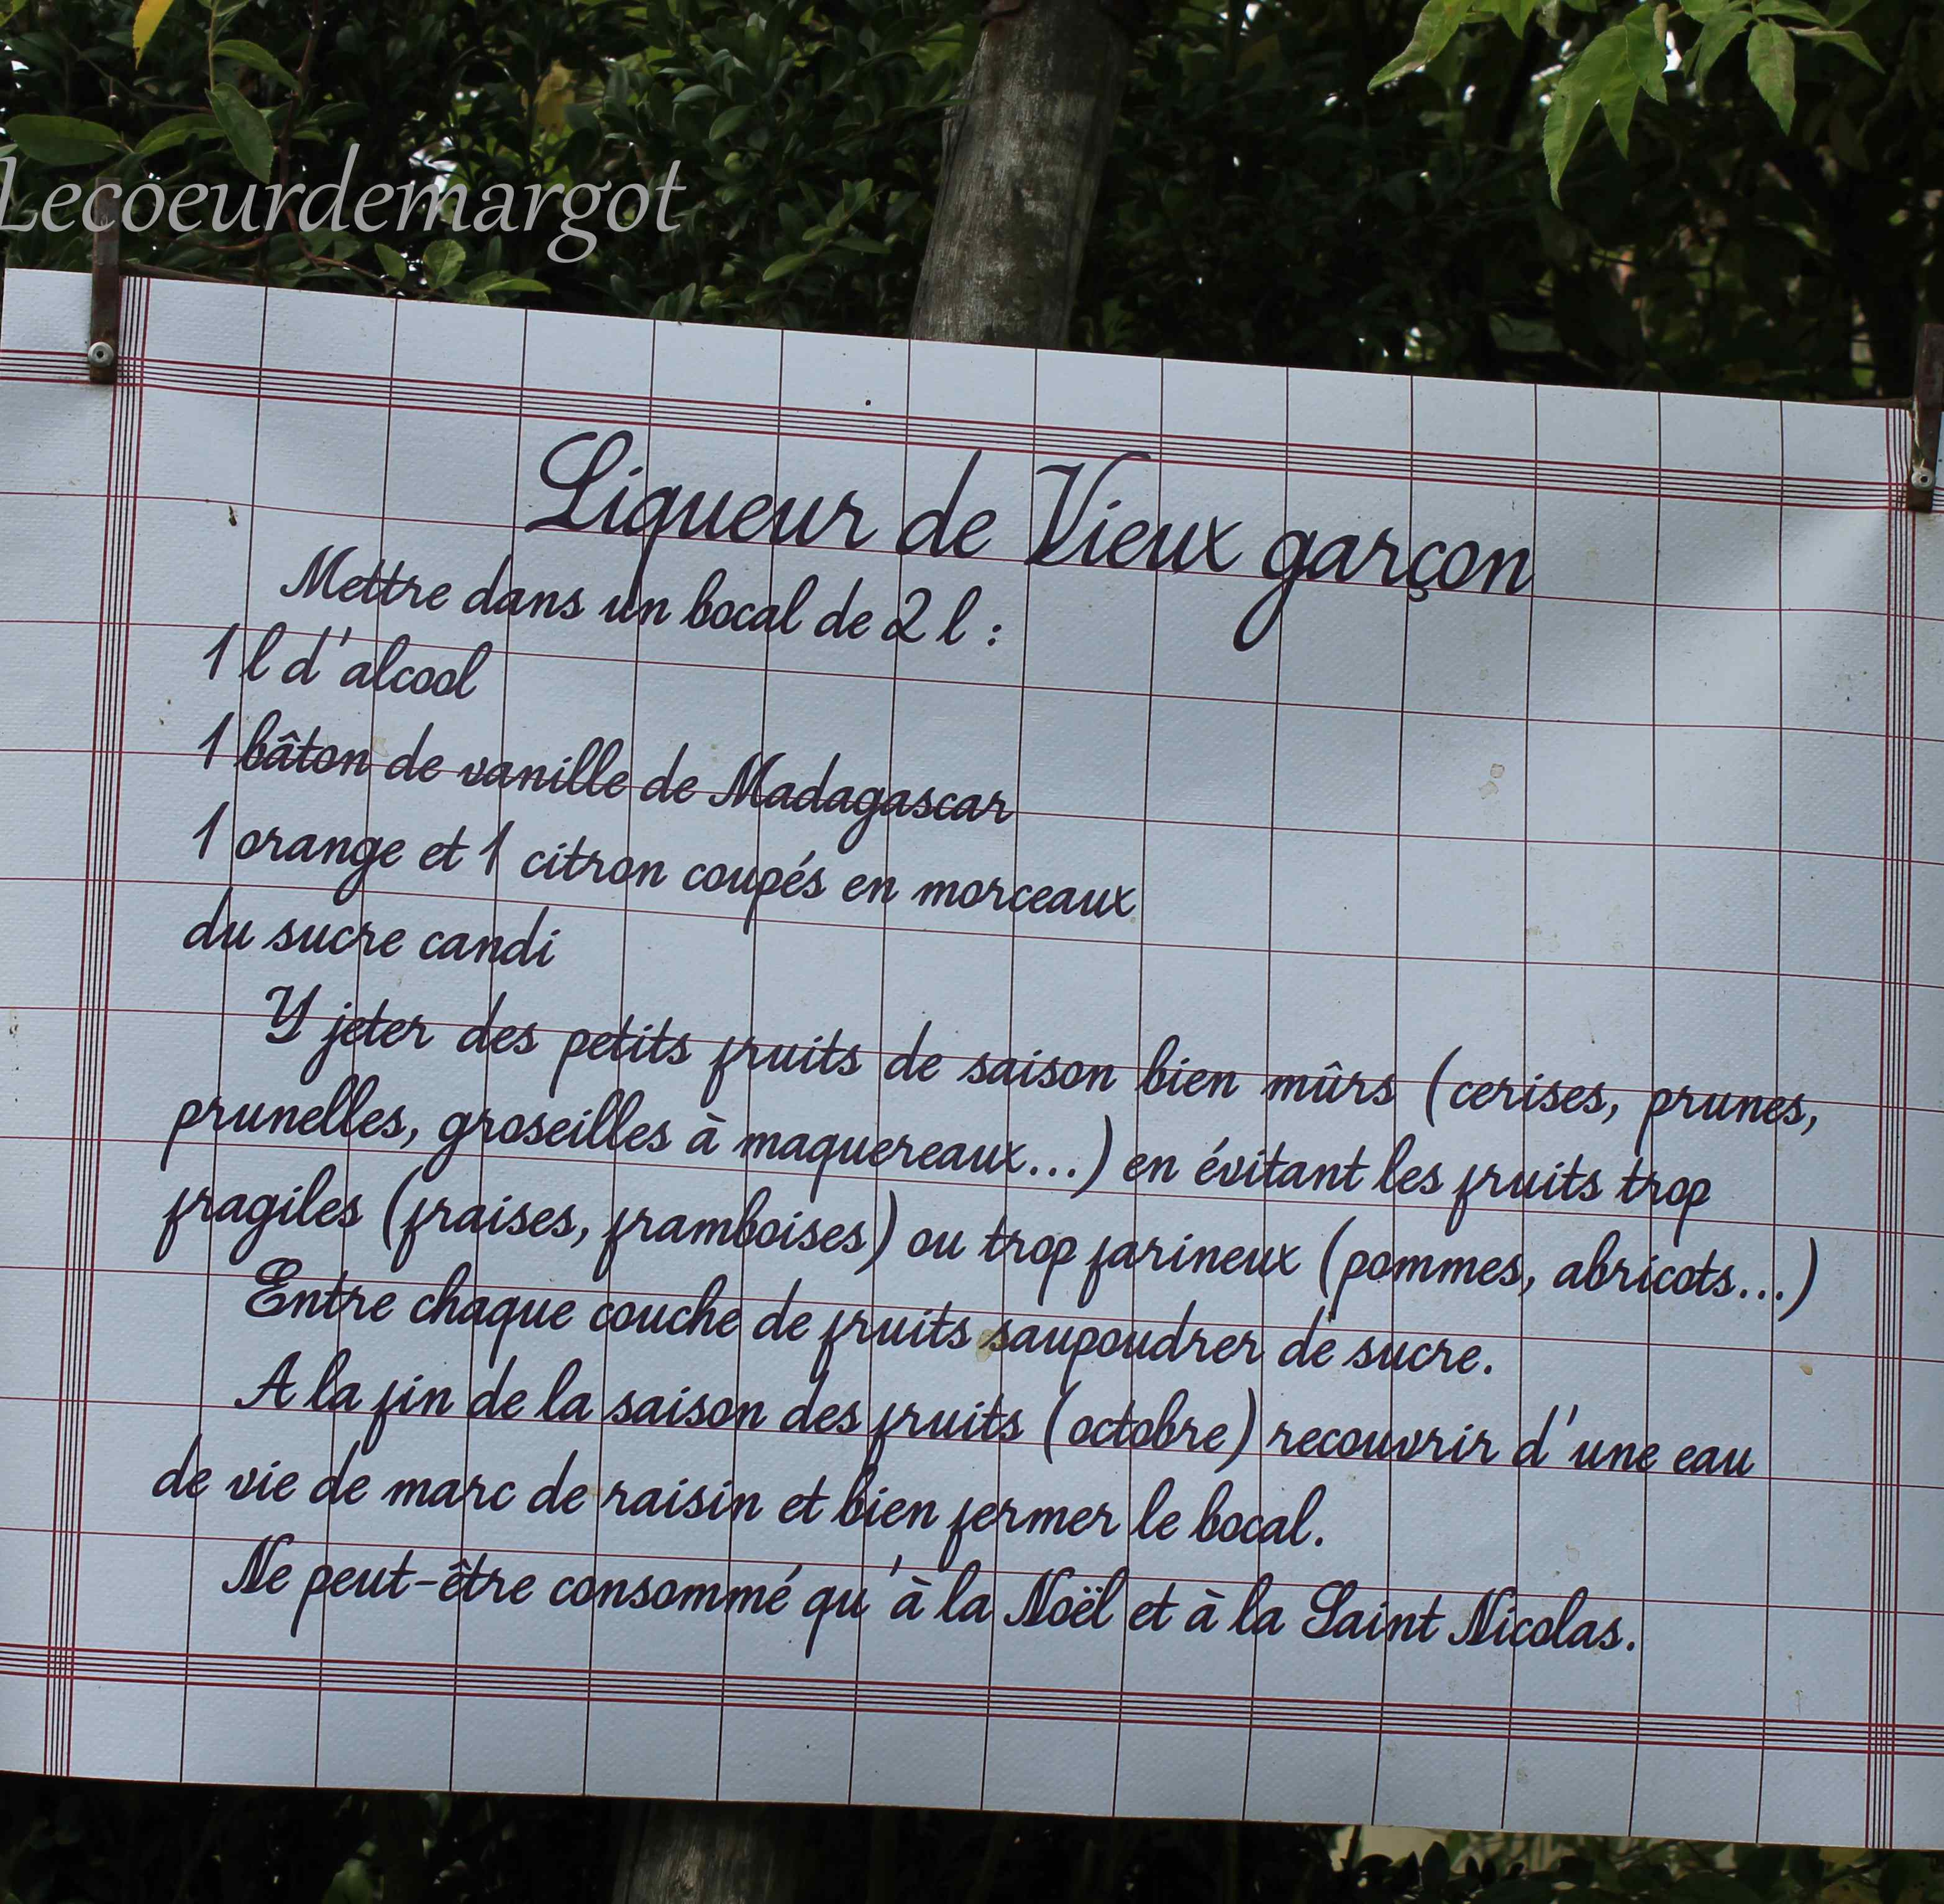 Lecoeurdemargot
Liqueur de Vieux garçon
Mettre dans un bocal de 2 l :
1 l d'alcool
1 bâton de vanille de Madagascar
1 orange et 1 citron coupés en morceaux
du sucre candi
Y jeter des petits fruits de saison bien mûrs (cerises, prunes,
prunelles, groseilles à maquereaux...) en évitant les fruits trop
fragiles (fraises, framboises) ou trop farineux (pommes, abricots...)
Entre chaque couche de fruits saupoudrer de sucre.
A la fin de la saison des fruits (octobre) recouvrir d'une eau
de vie de marc de raisin et bien fermer le bocal.
Ne peut-être consommé qu'à la Noël et à la Saint Nicolas.